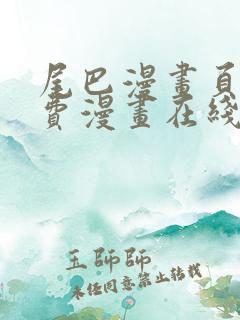 尾巴漫畫頁
費漫畫在綫
王師師
未任同意禁止转载